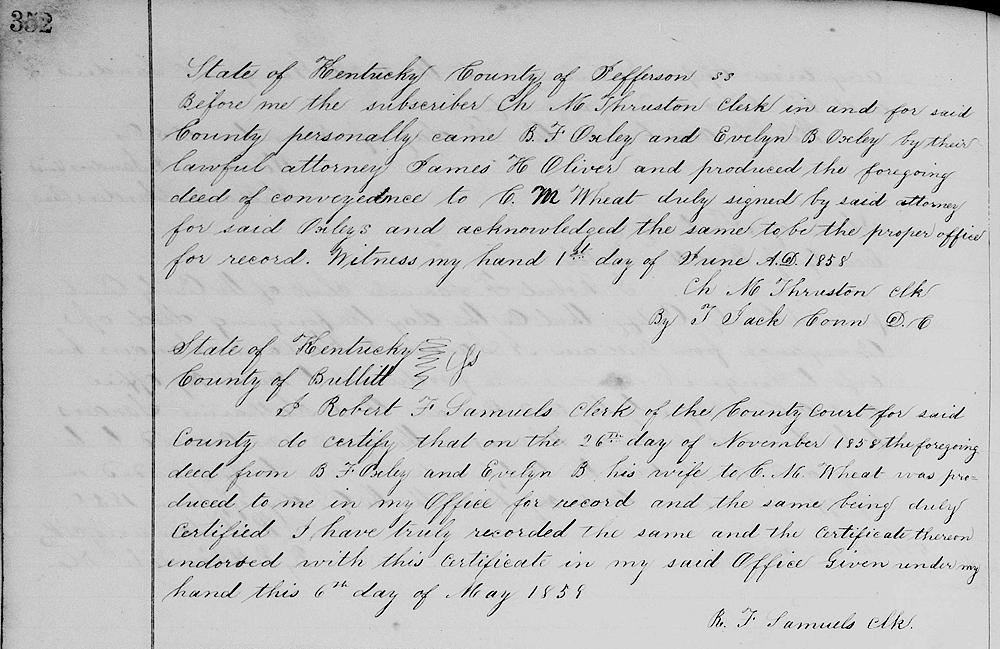 352
State of Kentucky County of Jefferson ss
Before me the subscriber Ch M Thruston Clerk in and for said
County personally came B. F Oxley and Evelyn B Oxley by their
lawful attorney James H Oliver and produced the foregoing
deed of conveyednce to C. M Wheat duly signed by said attorney
for said Oxleys and acknowledged the same to be the proper office
for record. Witness my hand 1st day of June A.D. 1858
Ch M Thruston clk
By J Jack Conn D. C
State of Kentucky
County of Bullitt
I Robert F Samuels Clerk of the County Court for said
County do certify that on the 26th day of November 1858 the foregoing
deed from B F Oxley and Evelyn B his wife to C. M. Wheat was pro=
duced to me in my Office for record and the same being duly
Certified I have truly recorded the same and the Certificate thereon
endorsed with this Certificate in my said Office Given under my
hand this 6th day of May 1859
R. F Samuels clk.